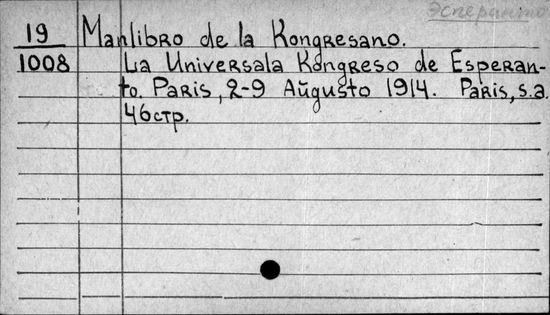 Эсперанто
19 Manlibro de la Kongresano.
1008 La Universala Kongreso de Esperan-
to. Paris, 2-9 Aŭgusto 1914. Paris, s.a.
46стр.